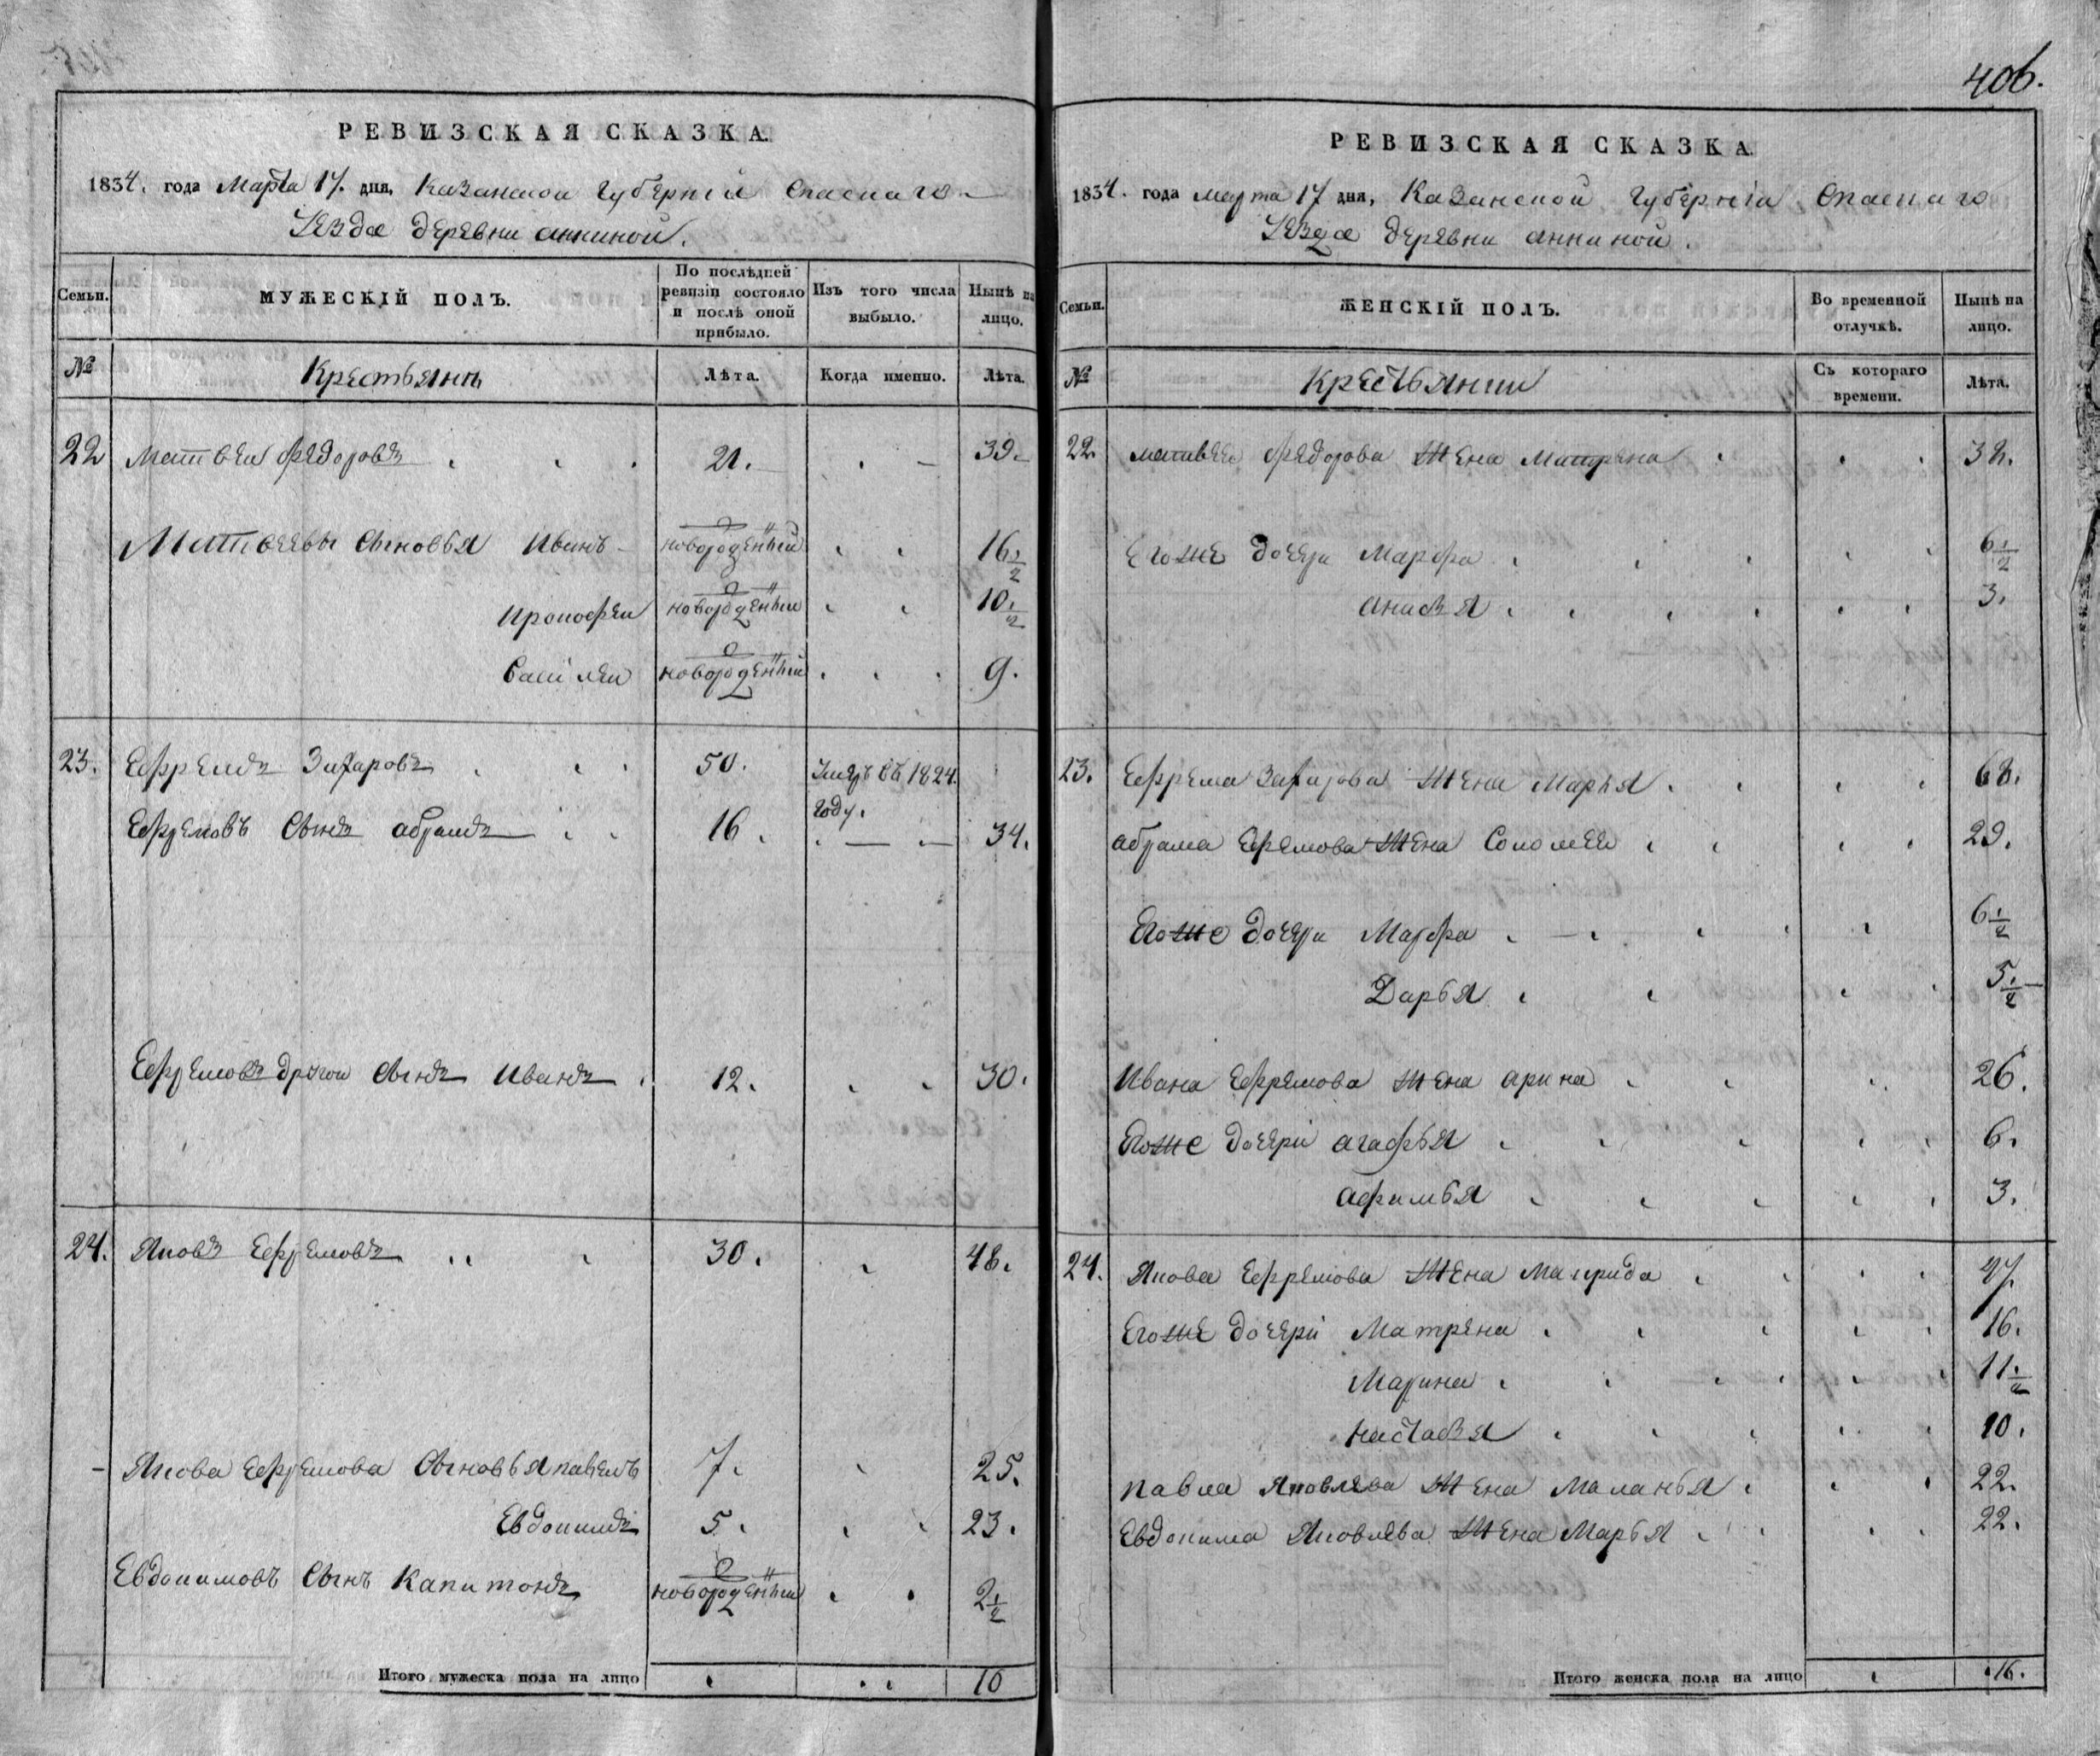 406.
РЕВИЗСКАЯ СКАЗКА.
1834. года Марта 17. дня, Казанской губерніи Спаскаго
Уезда деревни анниной.
Семьи.
МУЖЕСКІЙ ПОЛЪ.
По послѣдней ревизіи состояло и послѣ оной прибыло.
Изъ того числа выбыло.
Нынѣ на лицо.
№
Крестьянъ
Лѣта.
Когда именно.
Лѣта.
22 Матвеи Федоровъ 21. 39.
Матвеевы сыновья Иванъ новорожденный 16 1/2
Прокофеи новорожденныи 10 1/2
Василеи новорожденный 9.
23. Ефремъ Захаровъ 50. Умеръ въ 1824. году.
Ефремовъ сынъ абрамъ 16. 34.
Ефремовъ другои сынъ Иванъ 12. 30.
24. Яковъ Ефремовъ 30. 48.
Якова Ефремова сыновья павелъ 7. 25.
Евдокимъ 5. 23.
Евдокимовъ сынъ Капитонъ новорожденныи 2 1/2
Итого мужеска пола на лицо 10
РЕВИЗСКАЯ СКАЗКА.
1834. года марта 17 дня, Казанской губерніи Спаскаго
Уезда деревни анниной.
Семьи.
ЖЕНСКІЙ ПОЛЪ.
Во временной отлучкѣ.
Нынѣ на лицо.
№
Крестьянки
Съ котораго времени.
Лѣта.
22. матвея Федорова жена Матрена 38.
Егоже дочери Марфа 6 1/2
анисья 3.
23. Ефрема Захарова жена Марья 68.
абрама Ефремова жена Соломея 29.
Егоже дочери Марфа 6 1/2
Дарья 5 1/2
Ивана Ефремова жена арина 26.
Егоже дочери агафья 6.
афимья 3.
24. Якова Ефремова жена Маврида 47.
Егоже дочери Матрена 16.
Марина 11 1/2
настасья 10.
павла Яковлева жена Маланья 22.
Евдокима Яковлева жена Марья 22.
Итого женска пола на лицо 16.